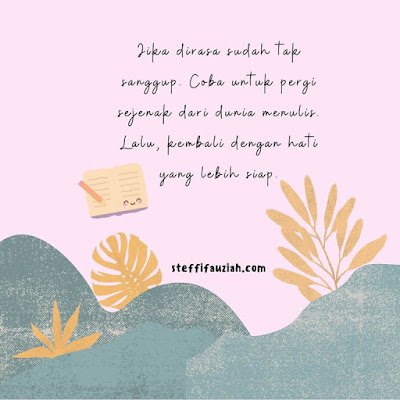 Jika dirasa sudah tak
sanggup. Coba untuk pergi
sejenak dari dunia menulis.
Lalu, kembali dengan hati
yang lebih siap.
steffifauziah.com